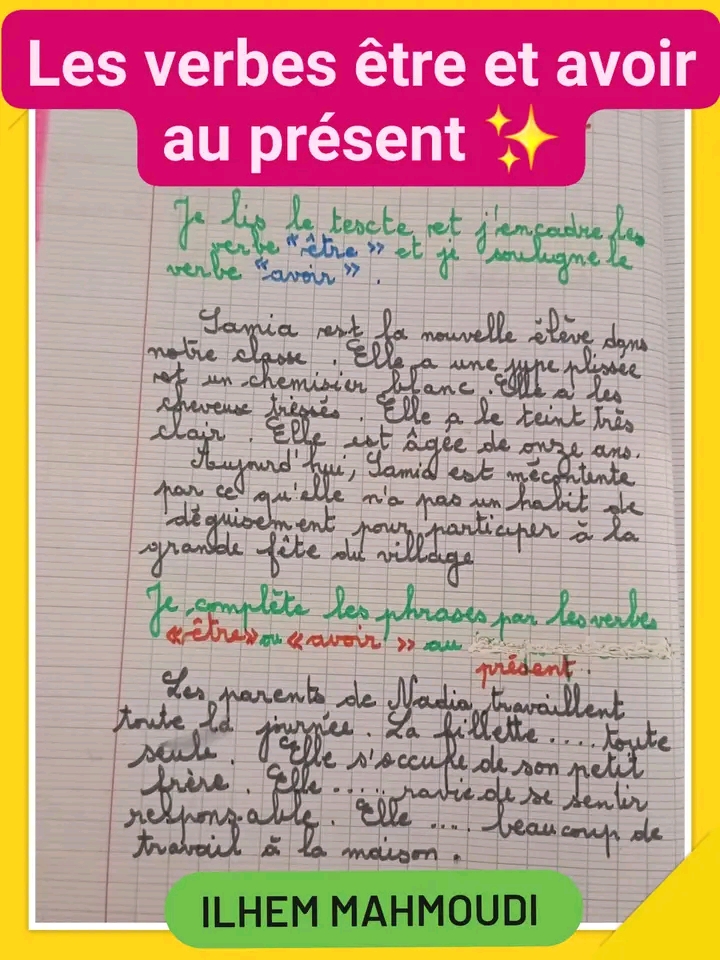 Les verbes être et avoir
au présent ✨
Je lis le texcte et j'encadre les
verbe "être" et je souligne le
verbe "avoir".
Samia est la nouvelle élève dans
notre classe. Elle a une jupe plissée
et un chemisier blanc. Elle a les
cheveux tressés. Elle a le teint très
clair. Elle est âgée de onze ans.
Aujourd'hui, Samia est mécontente
par ce qu'elle n'a pas un habit de
déguisement pour participer à la
grande fête du village
Je complète les phrases par les verbes
«être» ou «avoir» au
présent.
Les parents de Nadia travaillent
toute la journée. La fillette .... toute
seule. Elle s'occupe de son petit
frère. Elle ..... ravie de se sentir
responsable. Elle .... beaucoup de
travail à la maison.
ILHEM MAHMOUDI